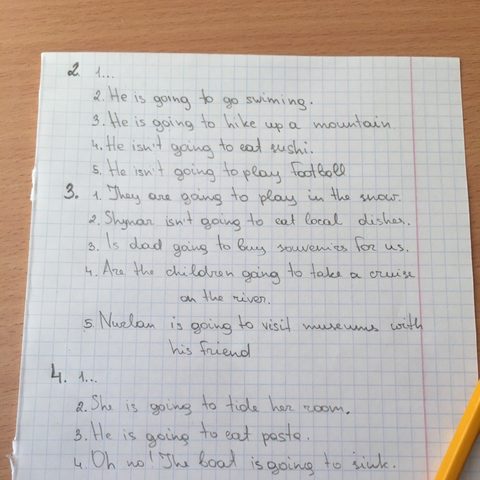 2. 1...
2. He is going to go swiming.
3. He is going to hike up a mountain
4. He isn't going to eat sushi.
5. He isn't going to play football
3. 1. They are going to play in the snow.
2. Shynar isn't going to eat local dishes.
3. Is dad going to buy souvenirs for us.
4. Are the children going to take a cruise
on the river.
5. Nurlan is going to visit museums with
his friend
4. 1...
2. She is going to tide her room.
3. He is going to eat pasta.
4. Oh no! The boat is going to sink.